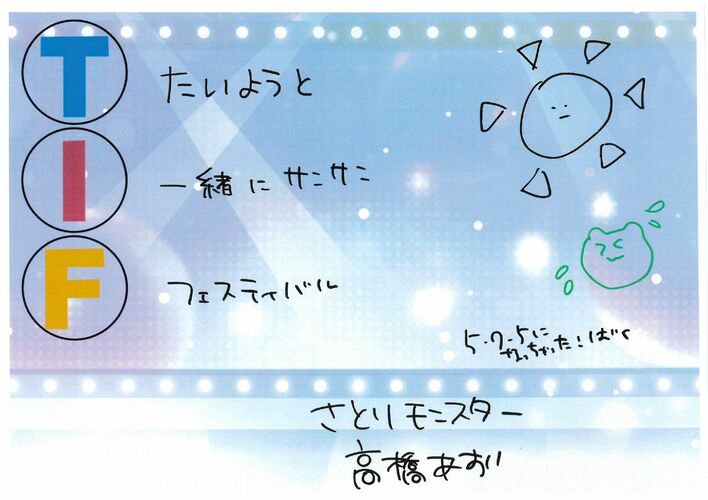 T たいようと
I 一緒に サンサン
F フェスティバル
5・7・5に
なっちゃった！ばく
さとりモンスター
高橋あおい